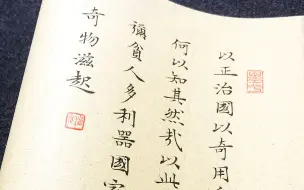 以正治國以奇用
何以知其然哉以此
彌貧人多利器國家
奇物滋起